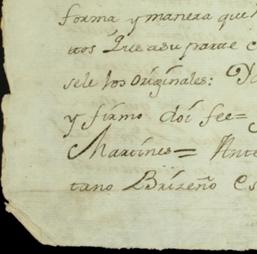 forma y manera que
itos Que a su parte
sele los Originales:
y firmo doi fee=
Martines= Ante
tano Brizeño Es